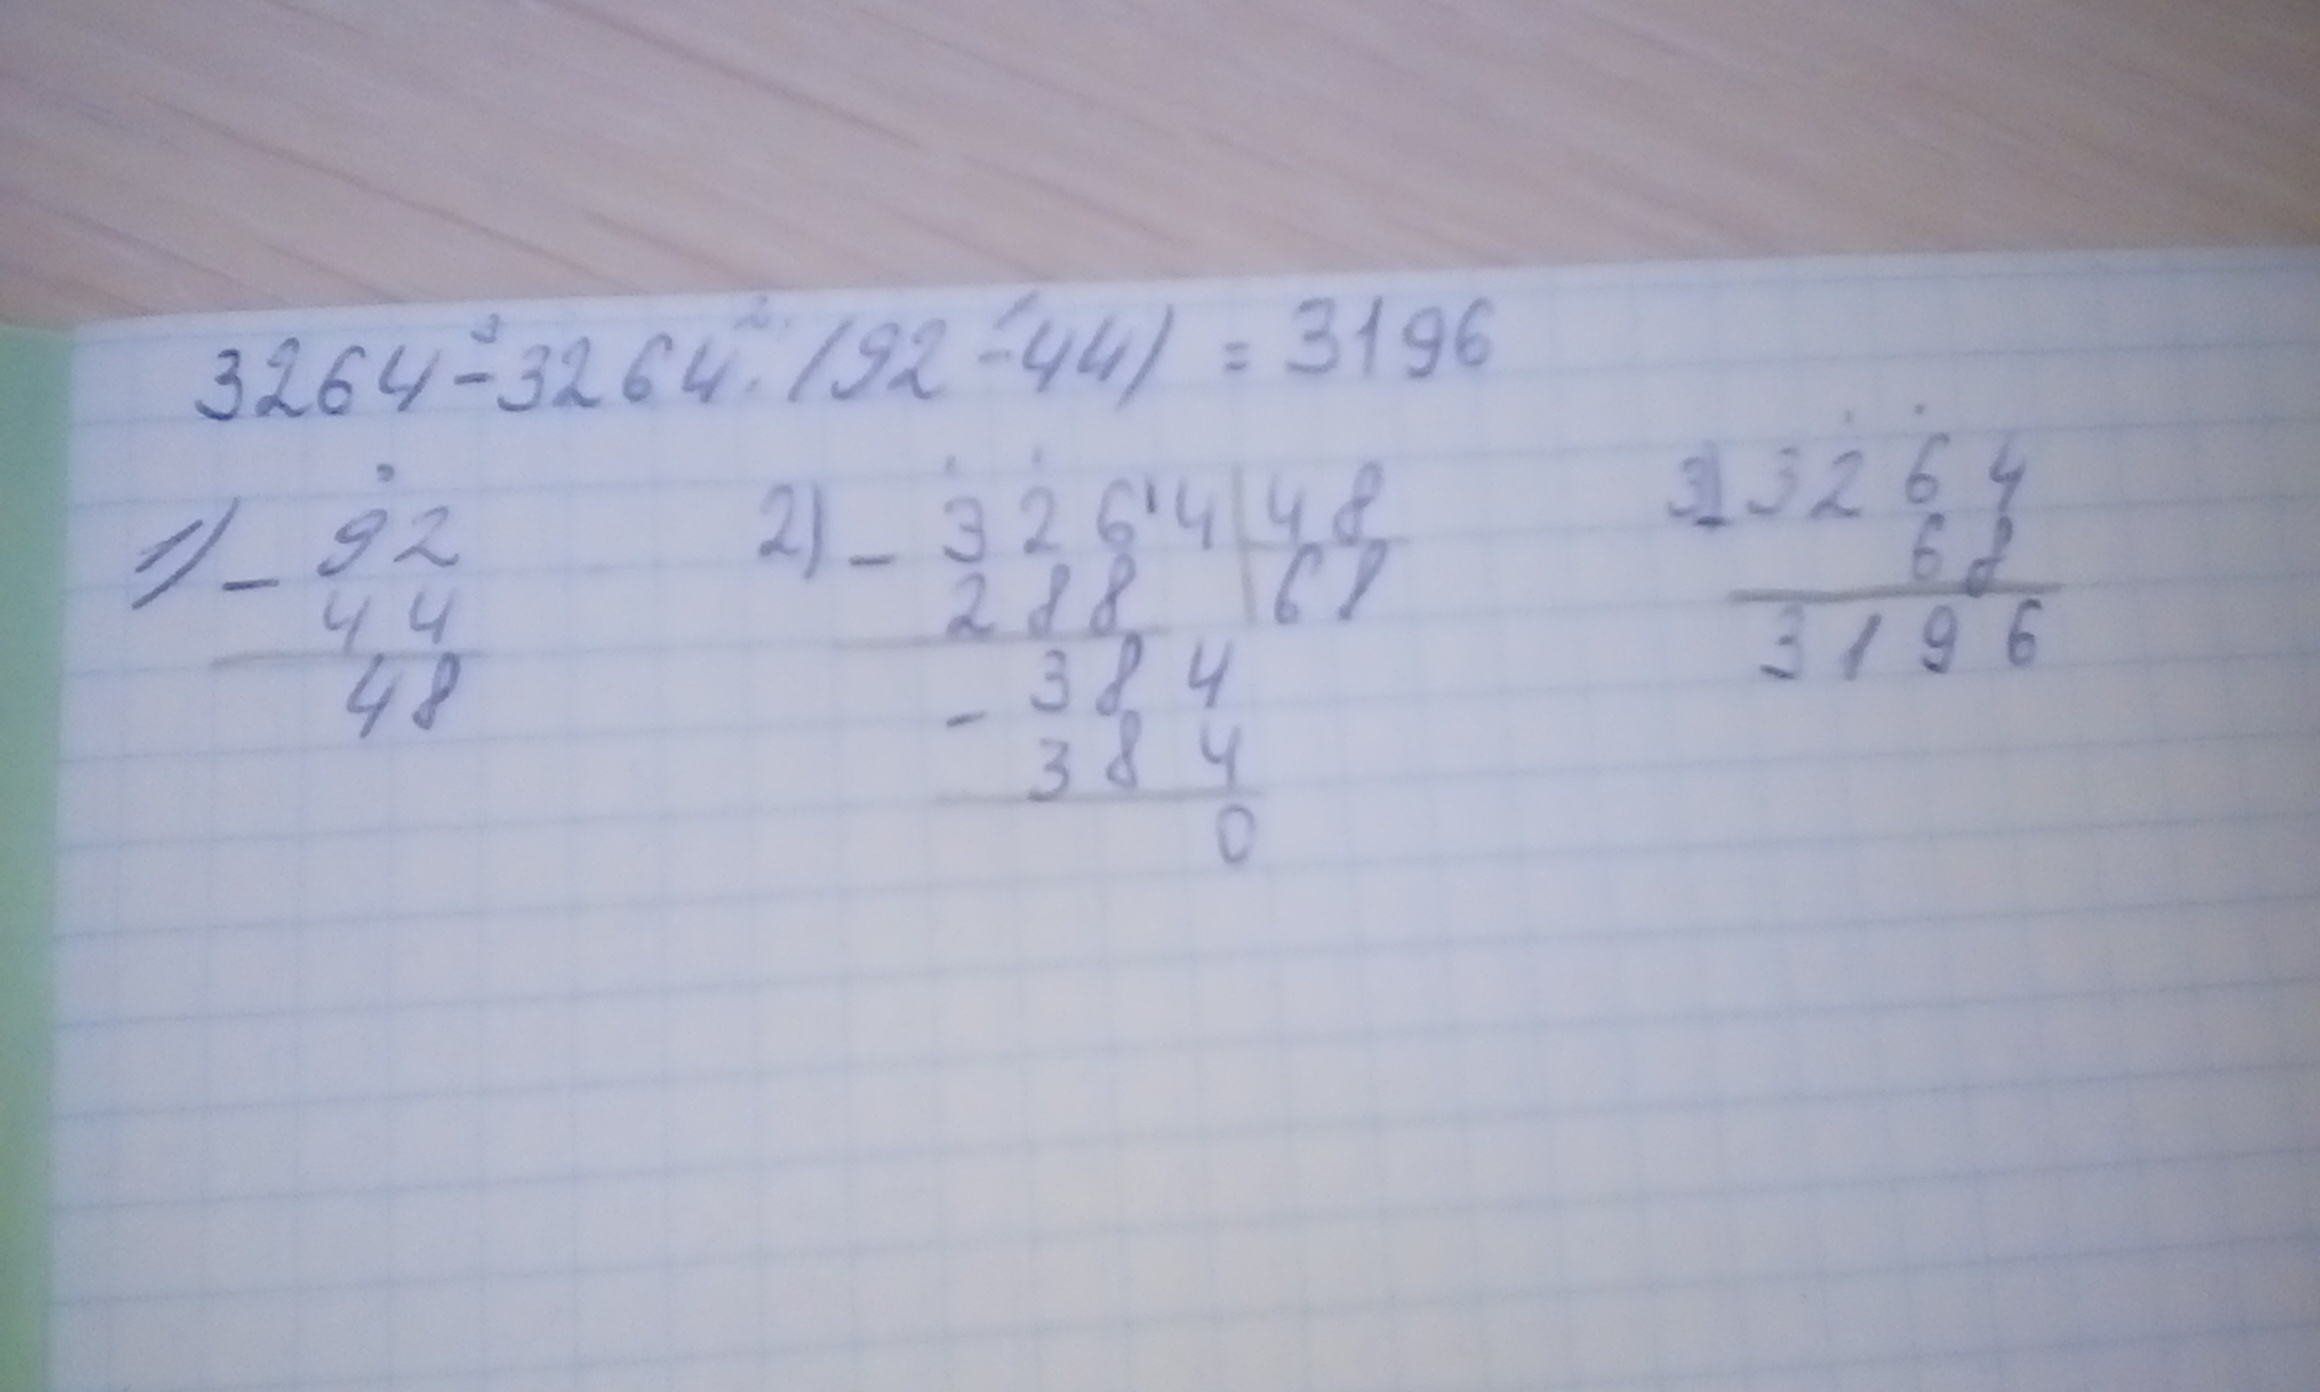 3264-3264:(92-44)=3196
3 2 1
1) - 92
44
48
2) - 3264 | 48
288 68
- 384
384
0
3) - 3264
68
3196